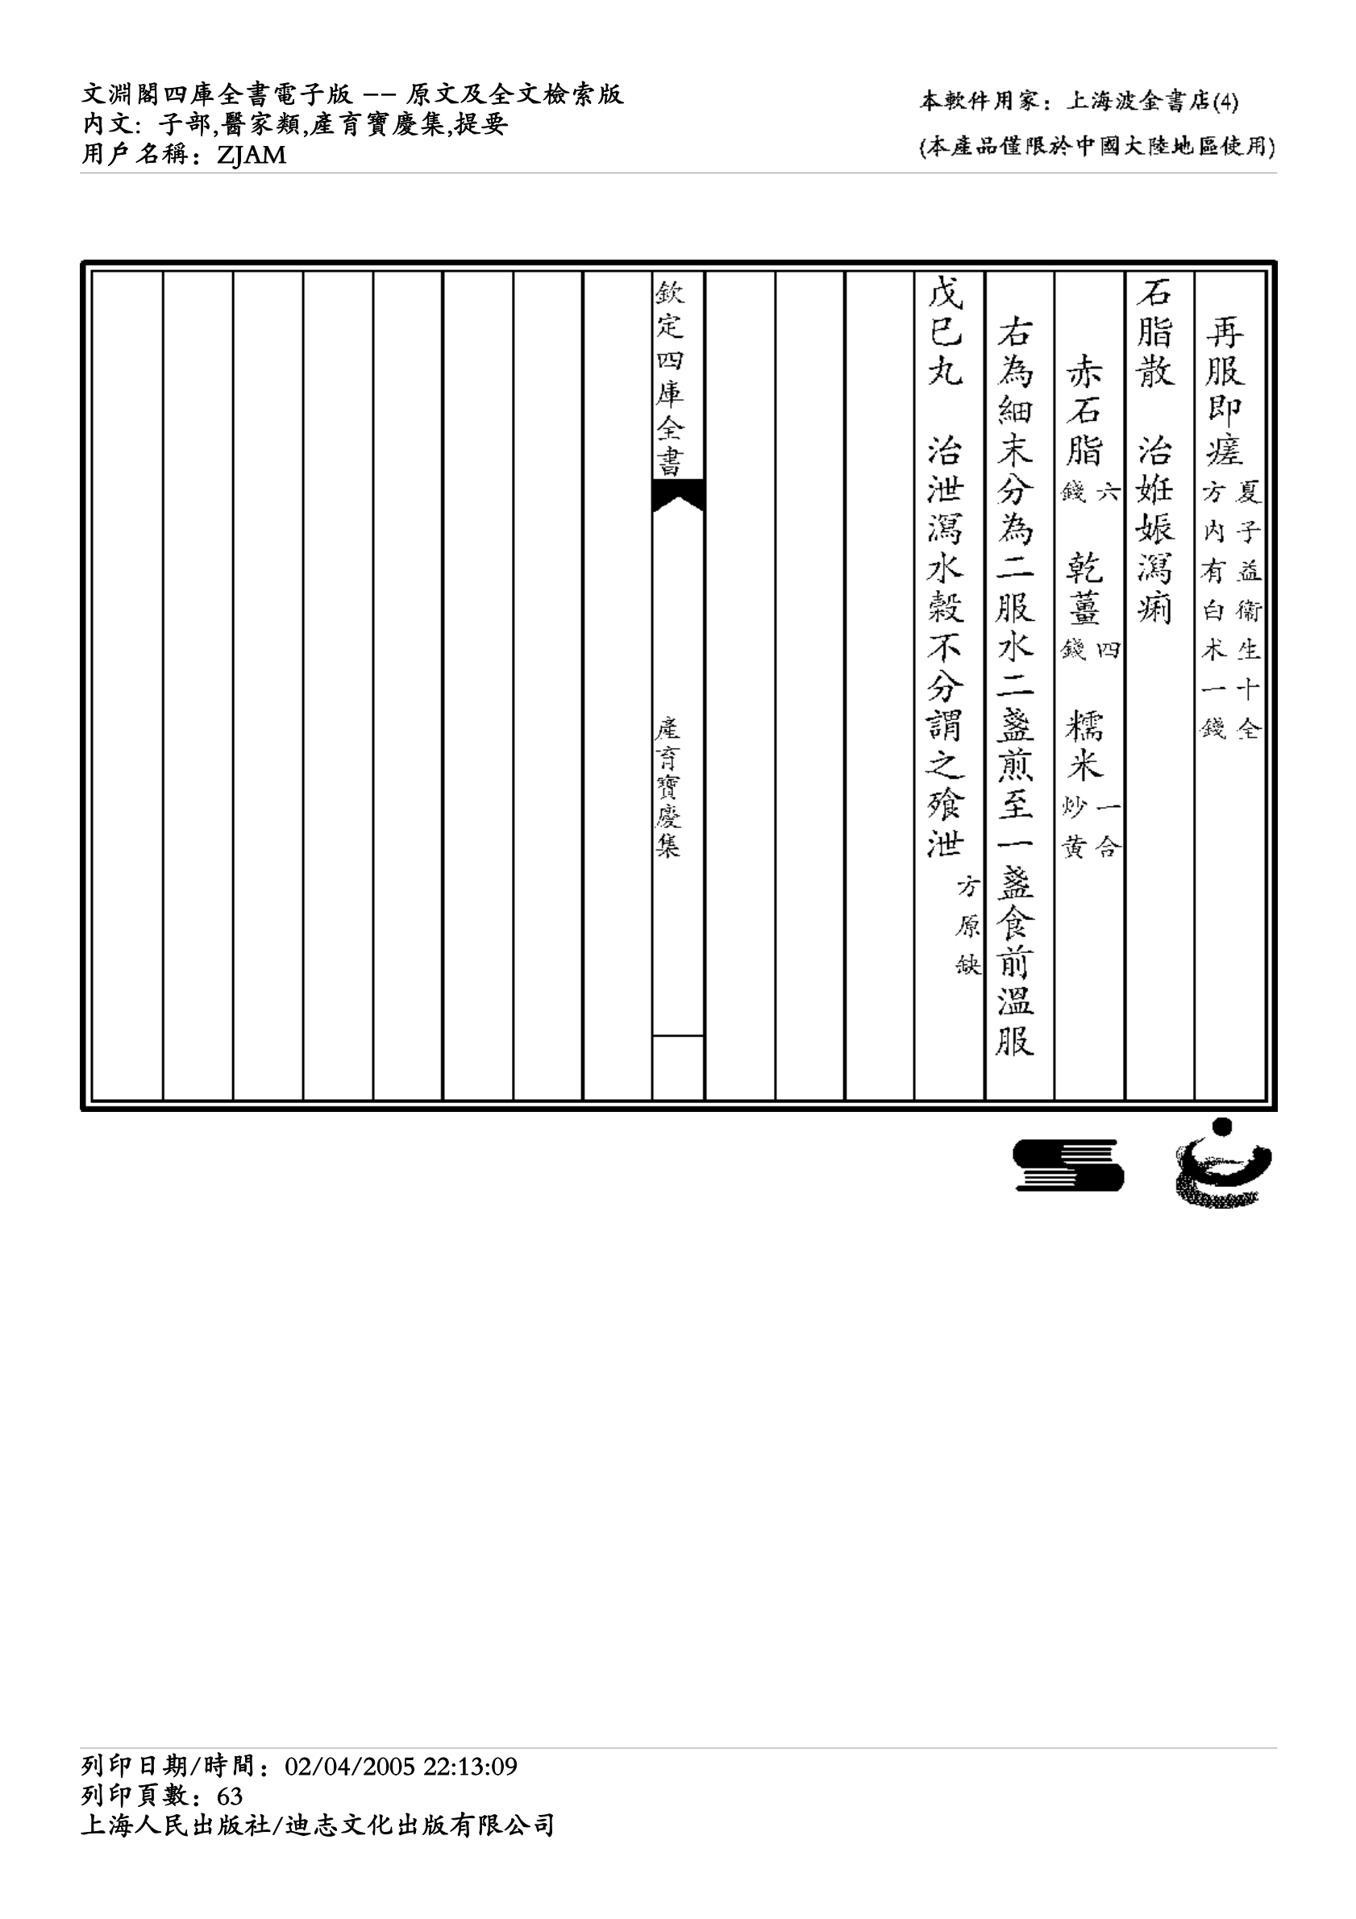 文淵閣四庫全書電子版 -- 原文及全文檢索版
內文: 子部,醫家類,產育寶慶集,提要
用戶名稱: ZJAM
本軟件用家: 上海波金書店(4)
(本產品僅限於中國大陸地區使用)
再服即瘥 夏子益衛生十全方內有白术一錢
石脂散 治姙娠瀉痢
赤石脂六錢 乾薑四錢 糯米一合炒黃
右為細末分為二服水二盞煎至一盞食前溫服
戊巳丸 治泄瀉水穀不分謂之飱泄 方原缺
欽定四庫全書 產育寶慶集
列印日期/時間: 02/04/2005 22:13:09
列印頁數: 63
上海人民出版社/迪志文化出版有限公司